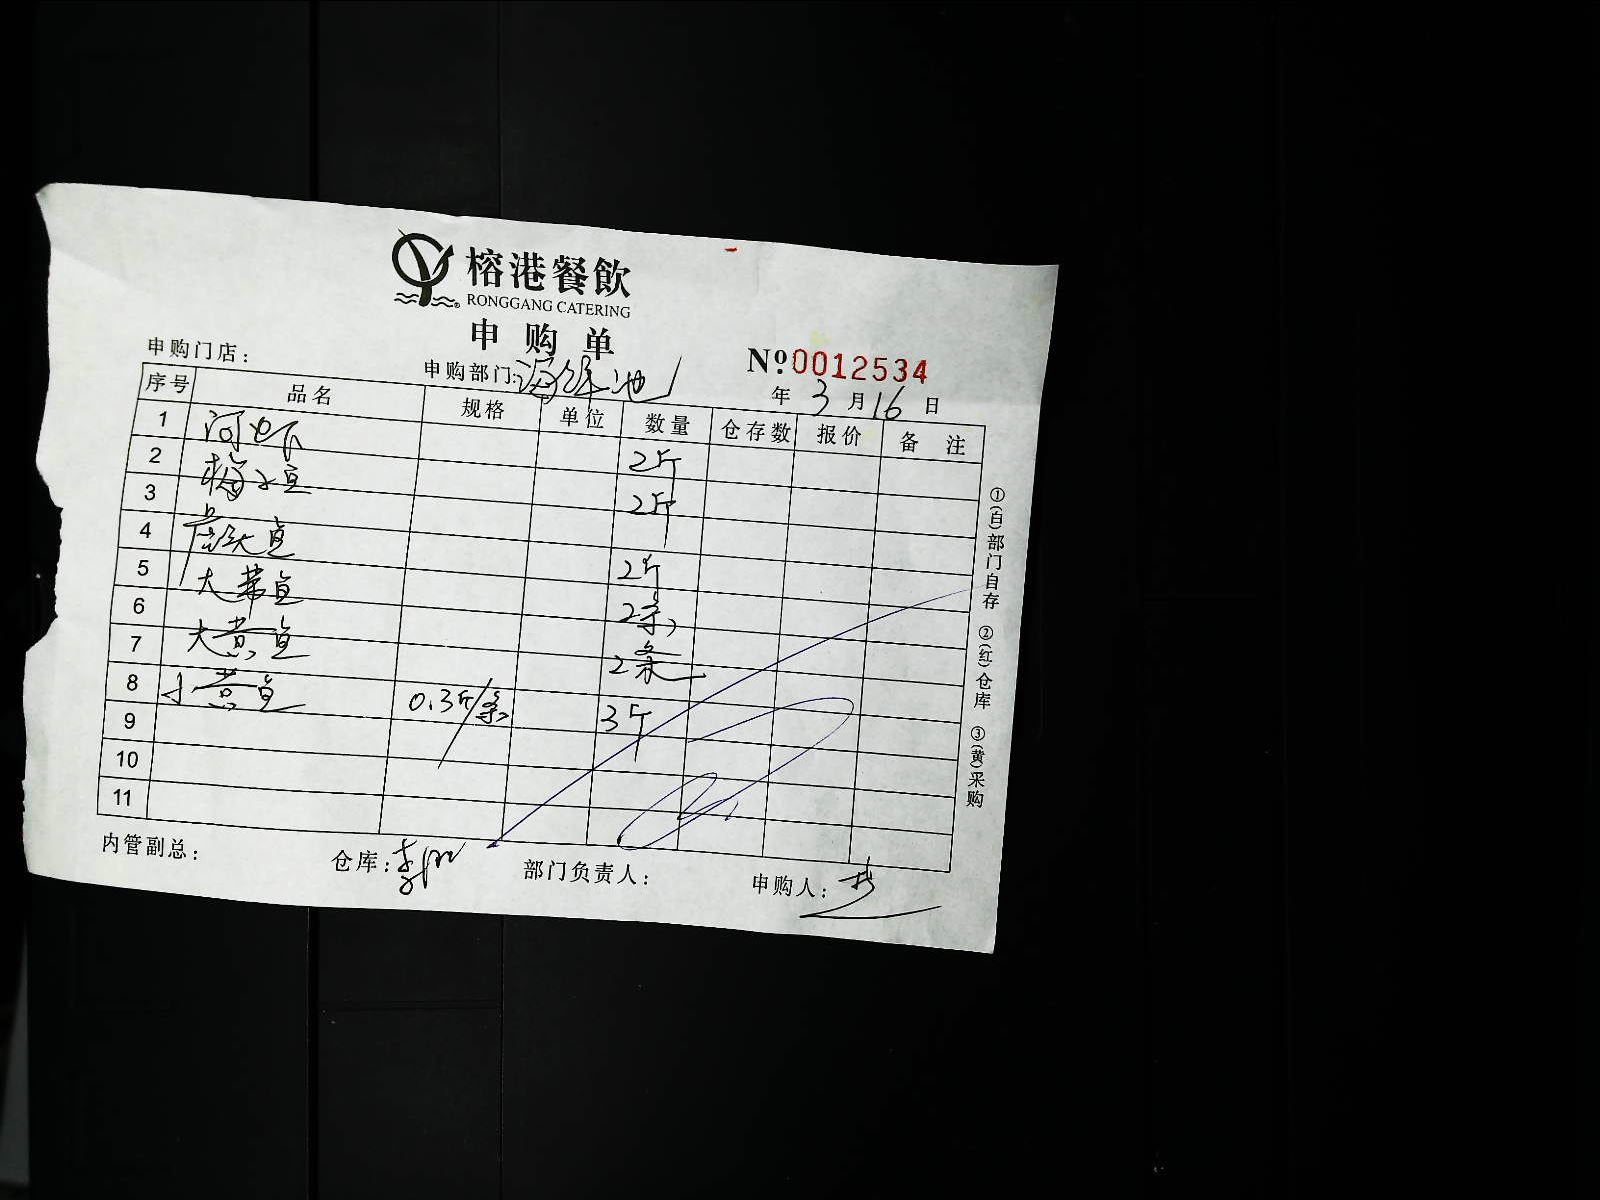 榕港餐飲
RONGGANG CATERING
申购单
申购门店： 申购部门：海鲜池 №0012534
年 3 月 16 日
序号 品名 规格 单位 数量 仓存数 报价 备注
1 河虾 2斤
2 梅子鱼 2斤
3
4 虎头鱼 2斤
5 大带鱼 2条
6 大黄鱼 2条
7 小黄鱼 0.3斤/条 3斤
8
9
10
11
内管副总： 仓库：李 部门负责人： 申购人：
①(白)部门自存 ②(红)仓库 ③(黄)采购